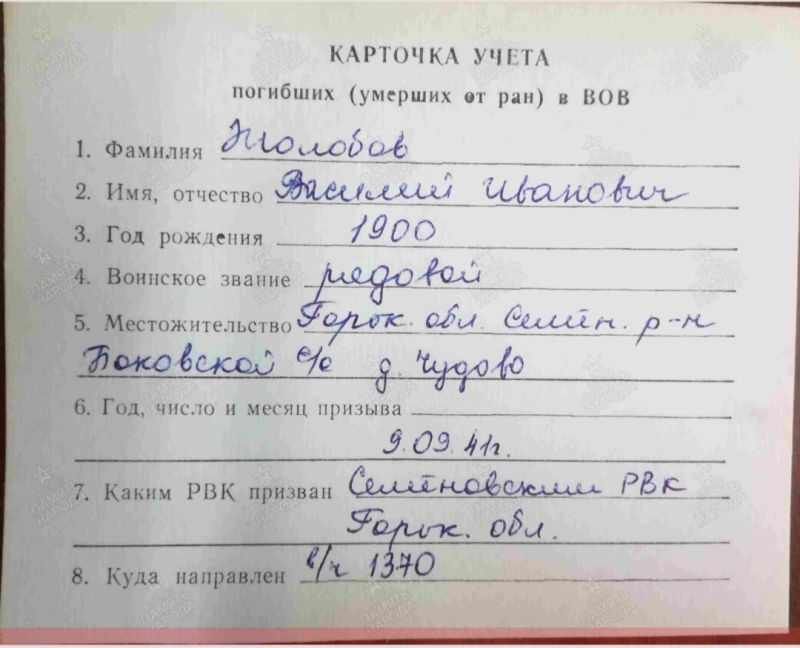 КАРТОЧКА УЧЕТА
погибших (умерших от ран) в ВОВ
1. Фамилия Жолобов
2. Имя, отчество Василий Иванович
3. Год рождения 1900
4. Воинское звание рядовой
5. Местожительство Горьк. обл. Семён. р-н
Боковской с/с д. Чудово
6. Год, число и месяц призыва
9.09.41г.
7. Каким РВК призван Семёновским РВК
Горьк. обл.
8. Куда направлен в/ч 1370